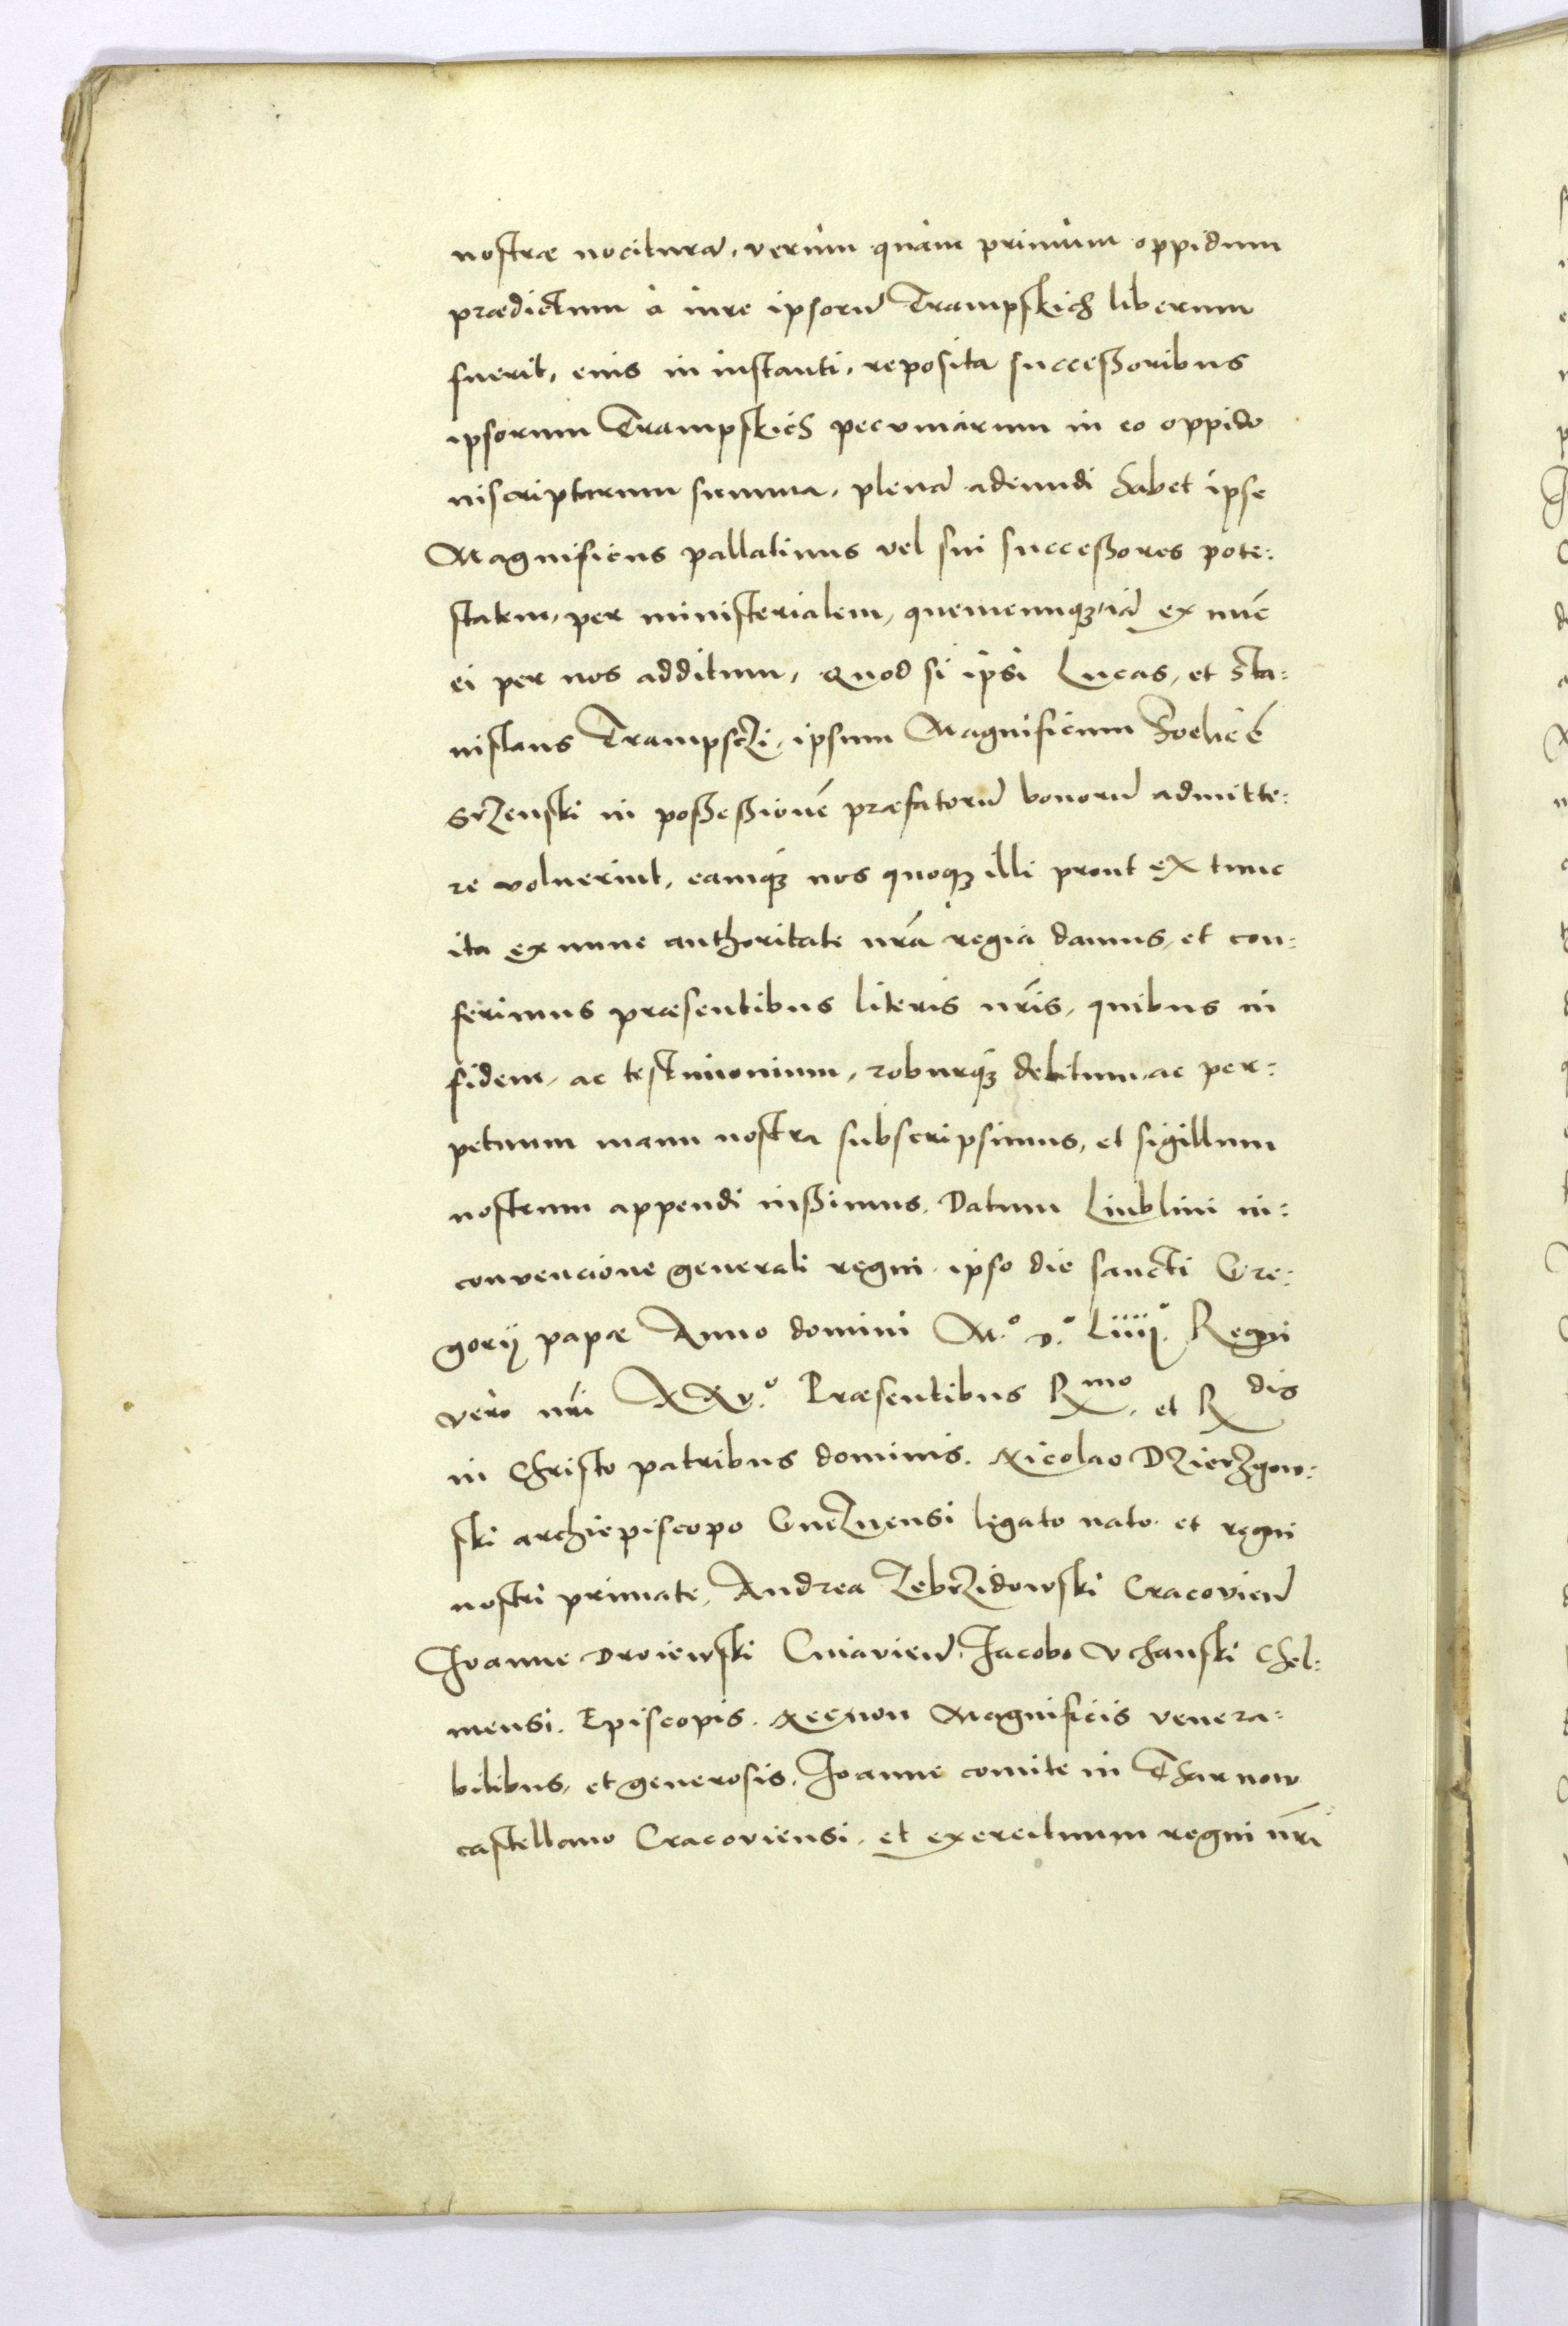 nostræ nocitura, verùm quàm primùm oppidum
prædictum à iure ipsorũ Trampskich liberum
fuerit, eius in instanti, reposita successoribus
ipsorum Trampskich pecuniarum in eo oppido
inscriptarum summa, plenã adeundi habet ipse
Magnificus pallatinus vel sui successores pote:
statem, per ministerialem, quemcunqȝ iã ex nũc
ei per nos additum, Quod si ipsi Lucas, et Sta:
nislaus Trampsczi, ipsum Magnificum Foelicẽ
Srzenski in possessionẽ præfatorũ bonorũ admitte:
re voluerint, eamqȝ nos quoqȝ illi prout ex tunc
ita ex nunc authoritate nrã regia damus, et con:
ferimus præsentibus literis nrĩs, quibus in
fidem, ac testimonium, roburqȝ debitum, ac per:
petuum manu nostra subscripsimus, et sigillum
nostrum appendi iussimus. Datum Liublini in:
convencione generali regni ipso die sancti Gre:
gorij papæ Anno domini M.º D.º Liiij.º Regni
vero nrĩ XXv.º Præsentibus Rmo. et Rdis
in Christo patribus dominis. Nicolao Dzierzgow:
ski archiepiscopo Gneznensi legato nato et regni
nostri primate, Andrea Zebrzidowski Cracovieñ
Joanne Droiewski Cuiavieñ, Jacobo Vchanski Chel:
mensi. Episcopis. Necnon Magnificis venera:
bilibus, et generosis, Joanne comite in Tharnow
castellano Cracoviensi, et exercituum regni nrĩ